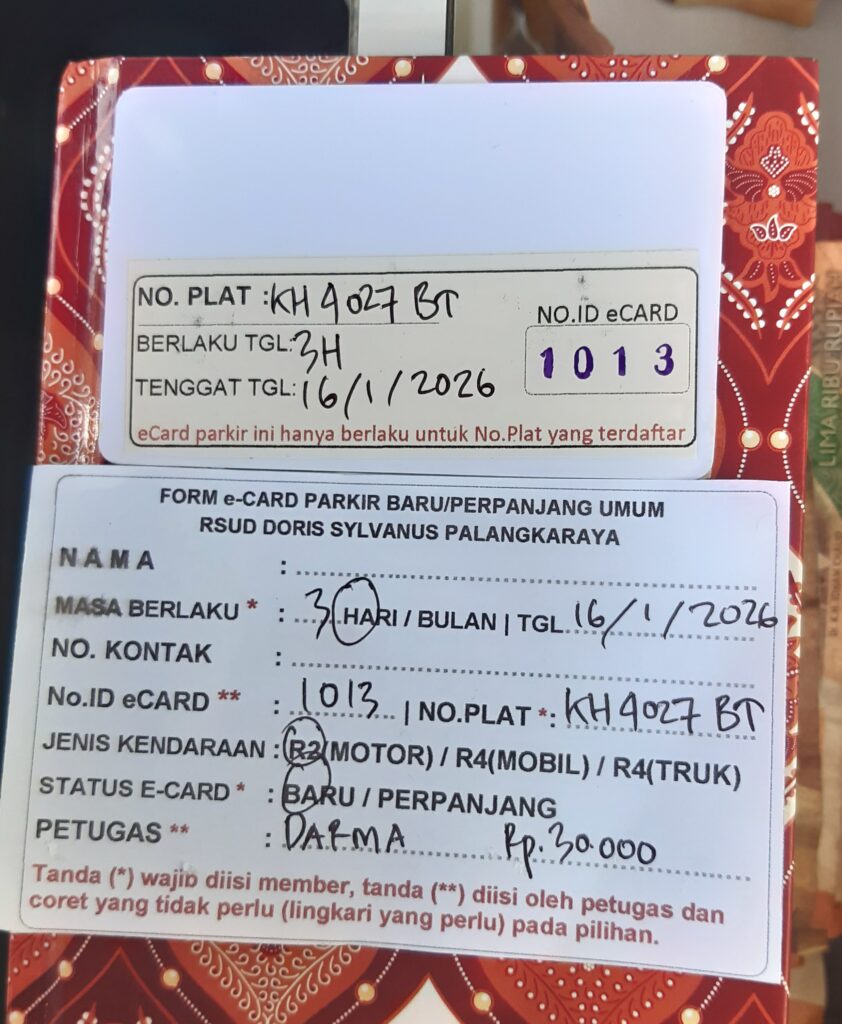 NO. PLAT : KH 4027 BT
NO.ID eCARD
BERLAKU TGL: 3H
1013
TENGGAT TGL: 16/1/2026
eCard parkir ini hanya berlaku untuk No.Plat yang terdaftar
FORM e-CARD PARKIR BARU/PERPANJANG UMUM
RSUD DORIS SYLVANUS PALANGKARAYA
N A M A :
MASA BERLAKU * : 3 HARI / BULAN | TGL 16/1/2026
NO. KONTAK :
No.ID eCARD ** : 1013 | NO.PLAT *: KH 4027 BT
JENIS KENDARAAN : R2(MOTOR) / R4(MOBIL) / R4(TRUK)
STATUS E-CARD * : BARU / PERPANJANG
PETUGAS ** : DARMA Rp.30.000
Tanda (*) wajib diisi member, tanda (**) diisi oleh petugas dan
coret yang tidak perlu (lingkari yang perlu) pada pilihan.
LIMA RIBU RUPIAH